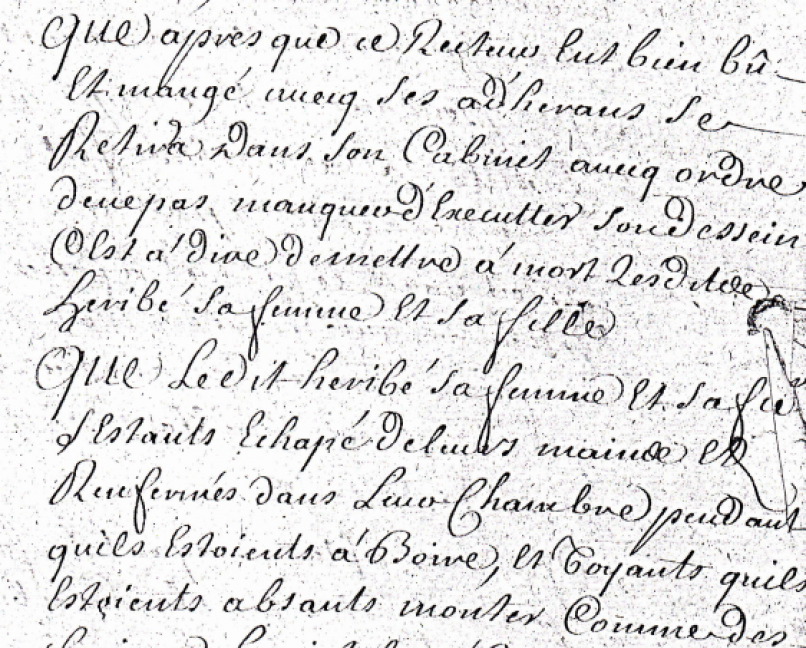 Que apres que ce Recteur Eut bien bû
Et mangé avecq Ses adherans Se
Retira Dans Son Cabinet avecq ordre
dene pas manquer d'Executter Son dessein
C'Est a' dire de mettre a' mort Lesdits de
heribé Sa femme Et Sa fille
Que Ledit heribé Sa femme Et Sa fille
S'Estants Echapé de leurs mains Et
Renfermés dans Leur Chambre pendant
quils Estoients a' Boire, Et Voyants quils
Estoients absants monter Comme des